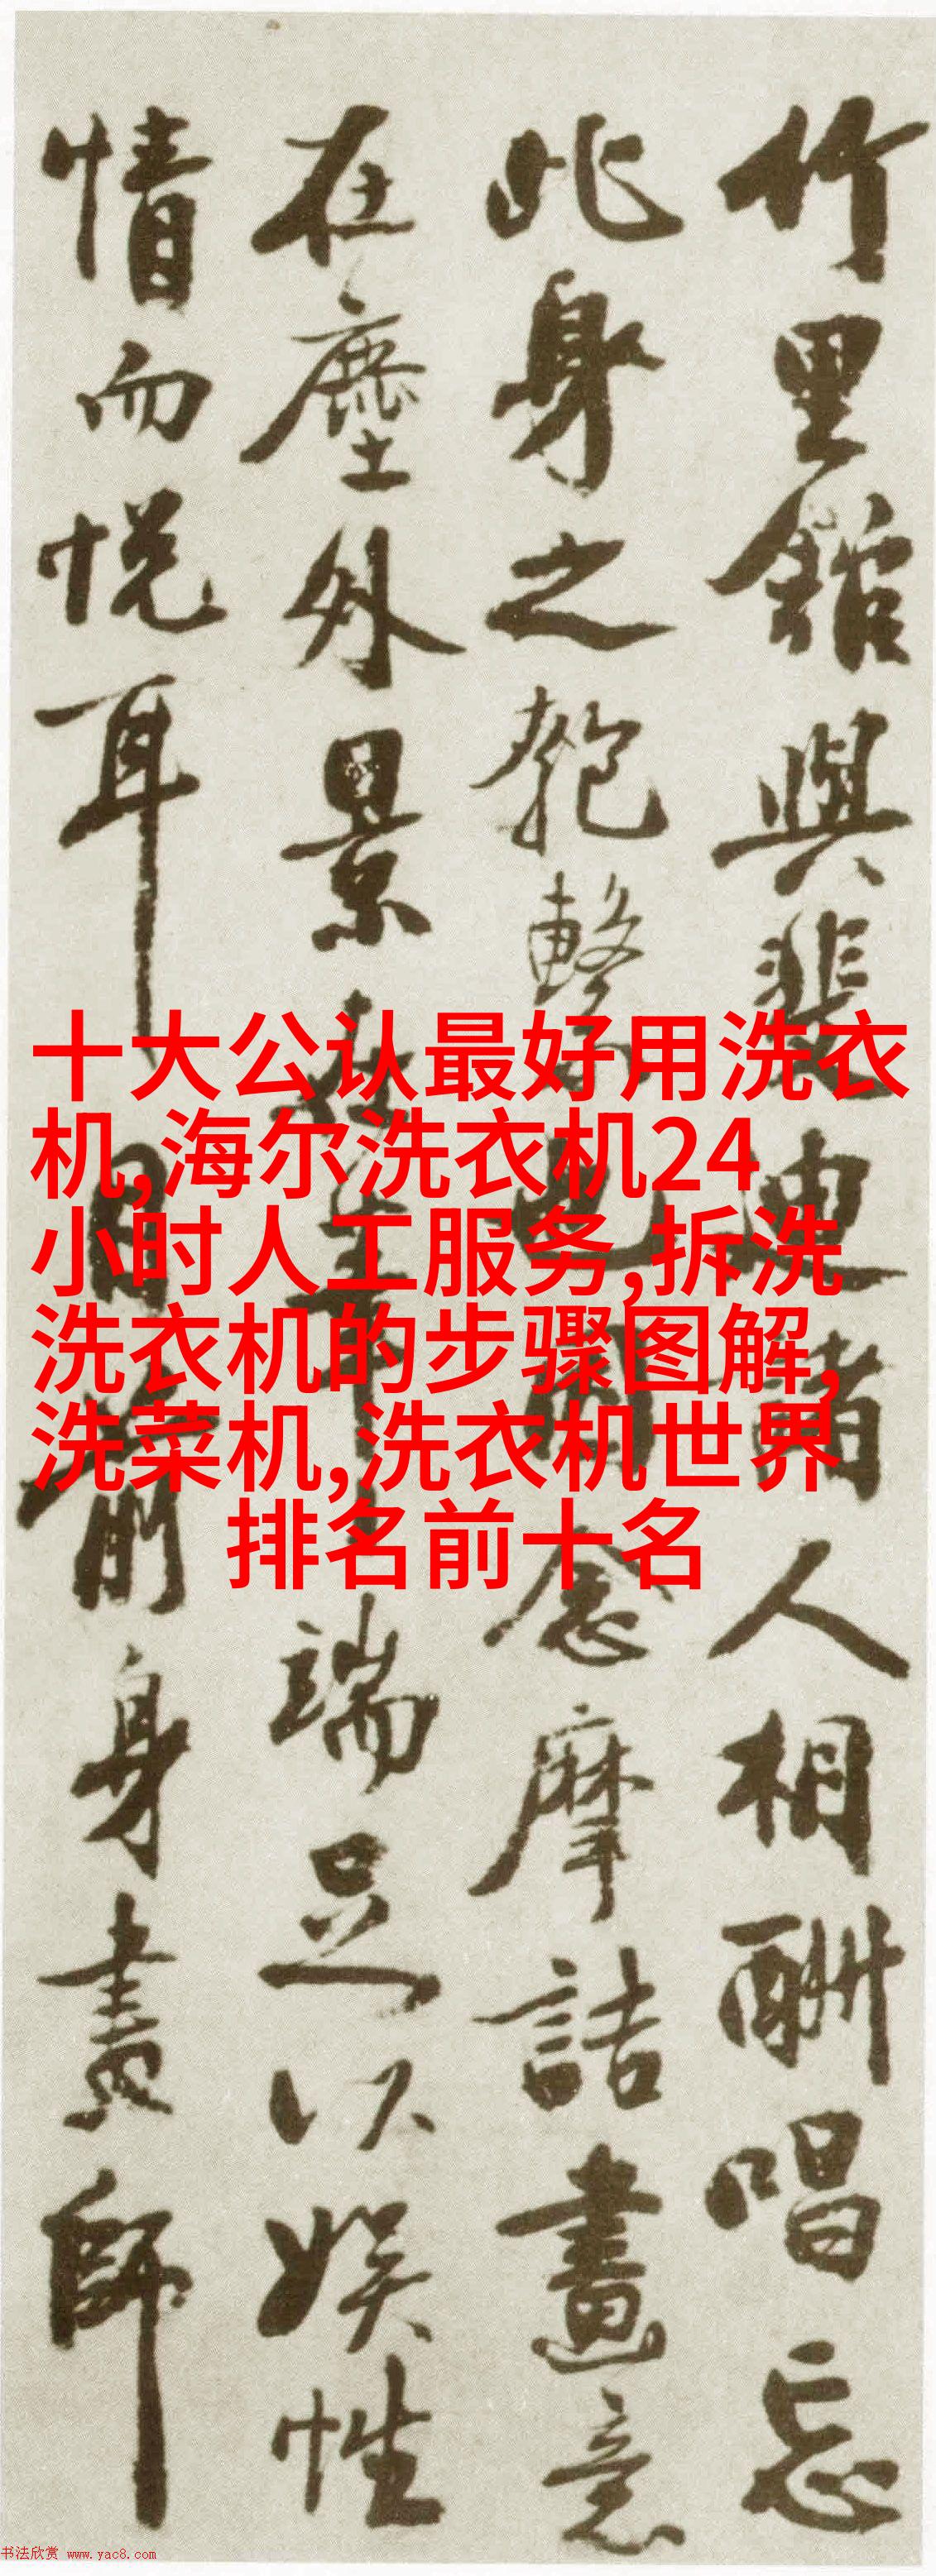 竹里館與裴迪諸人相酬唱忘
此身之匏繫也因念摩詰畫意
在塵外景在筆端足以娛性
情而悅耳目前身畫師
十大公认最好用洗衣
机,海尔洗衣机24
小时人工服务,拆洗
洗衣机的步骤图解,
洗菜机,洗衣机世界
排名前十名
书法欣赏 www.yac8.com